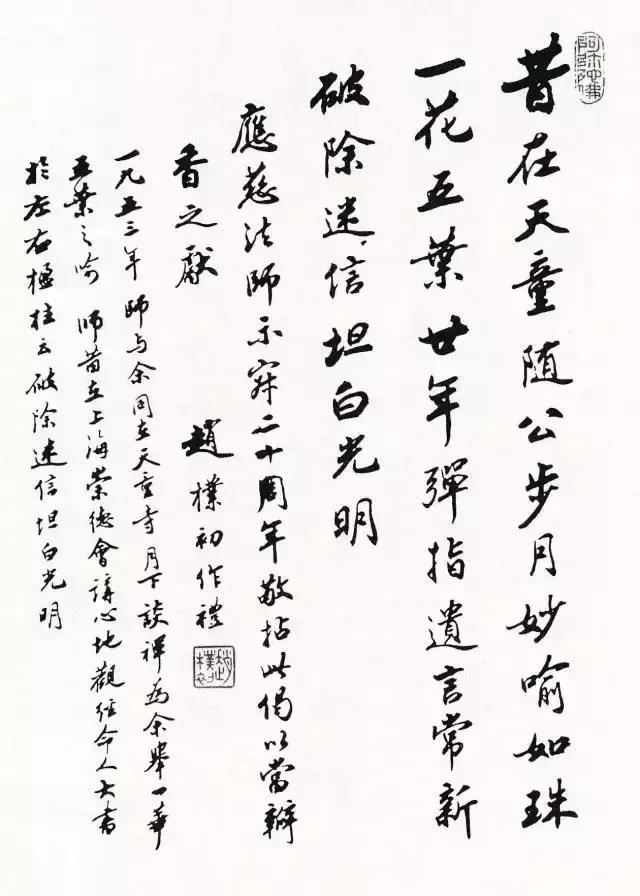 昔在天童随公步月妙喻如珠
一花五葉廿年彈指遺言常新
破除迷信坦白光明
應慈法師示寂二十周年敬拈此偈以當瓣
香之獻
趙樸初作禮
一九五三年師与余同在天童寺月下談禪為余舉一華
五葉之喻師昔在上海崇德會講心地觀經命人大書
於左右楹柱云破除迷信坦白光明
阿弥陀佛
趙樸初